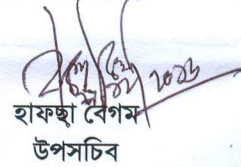 হাফছা বেগম
উপসচিব